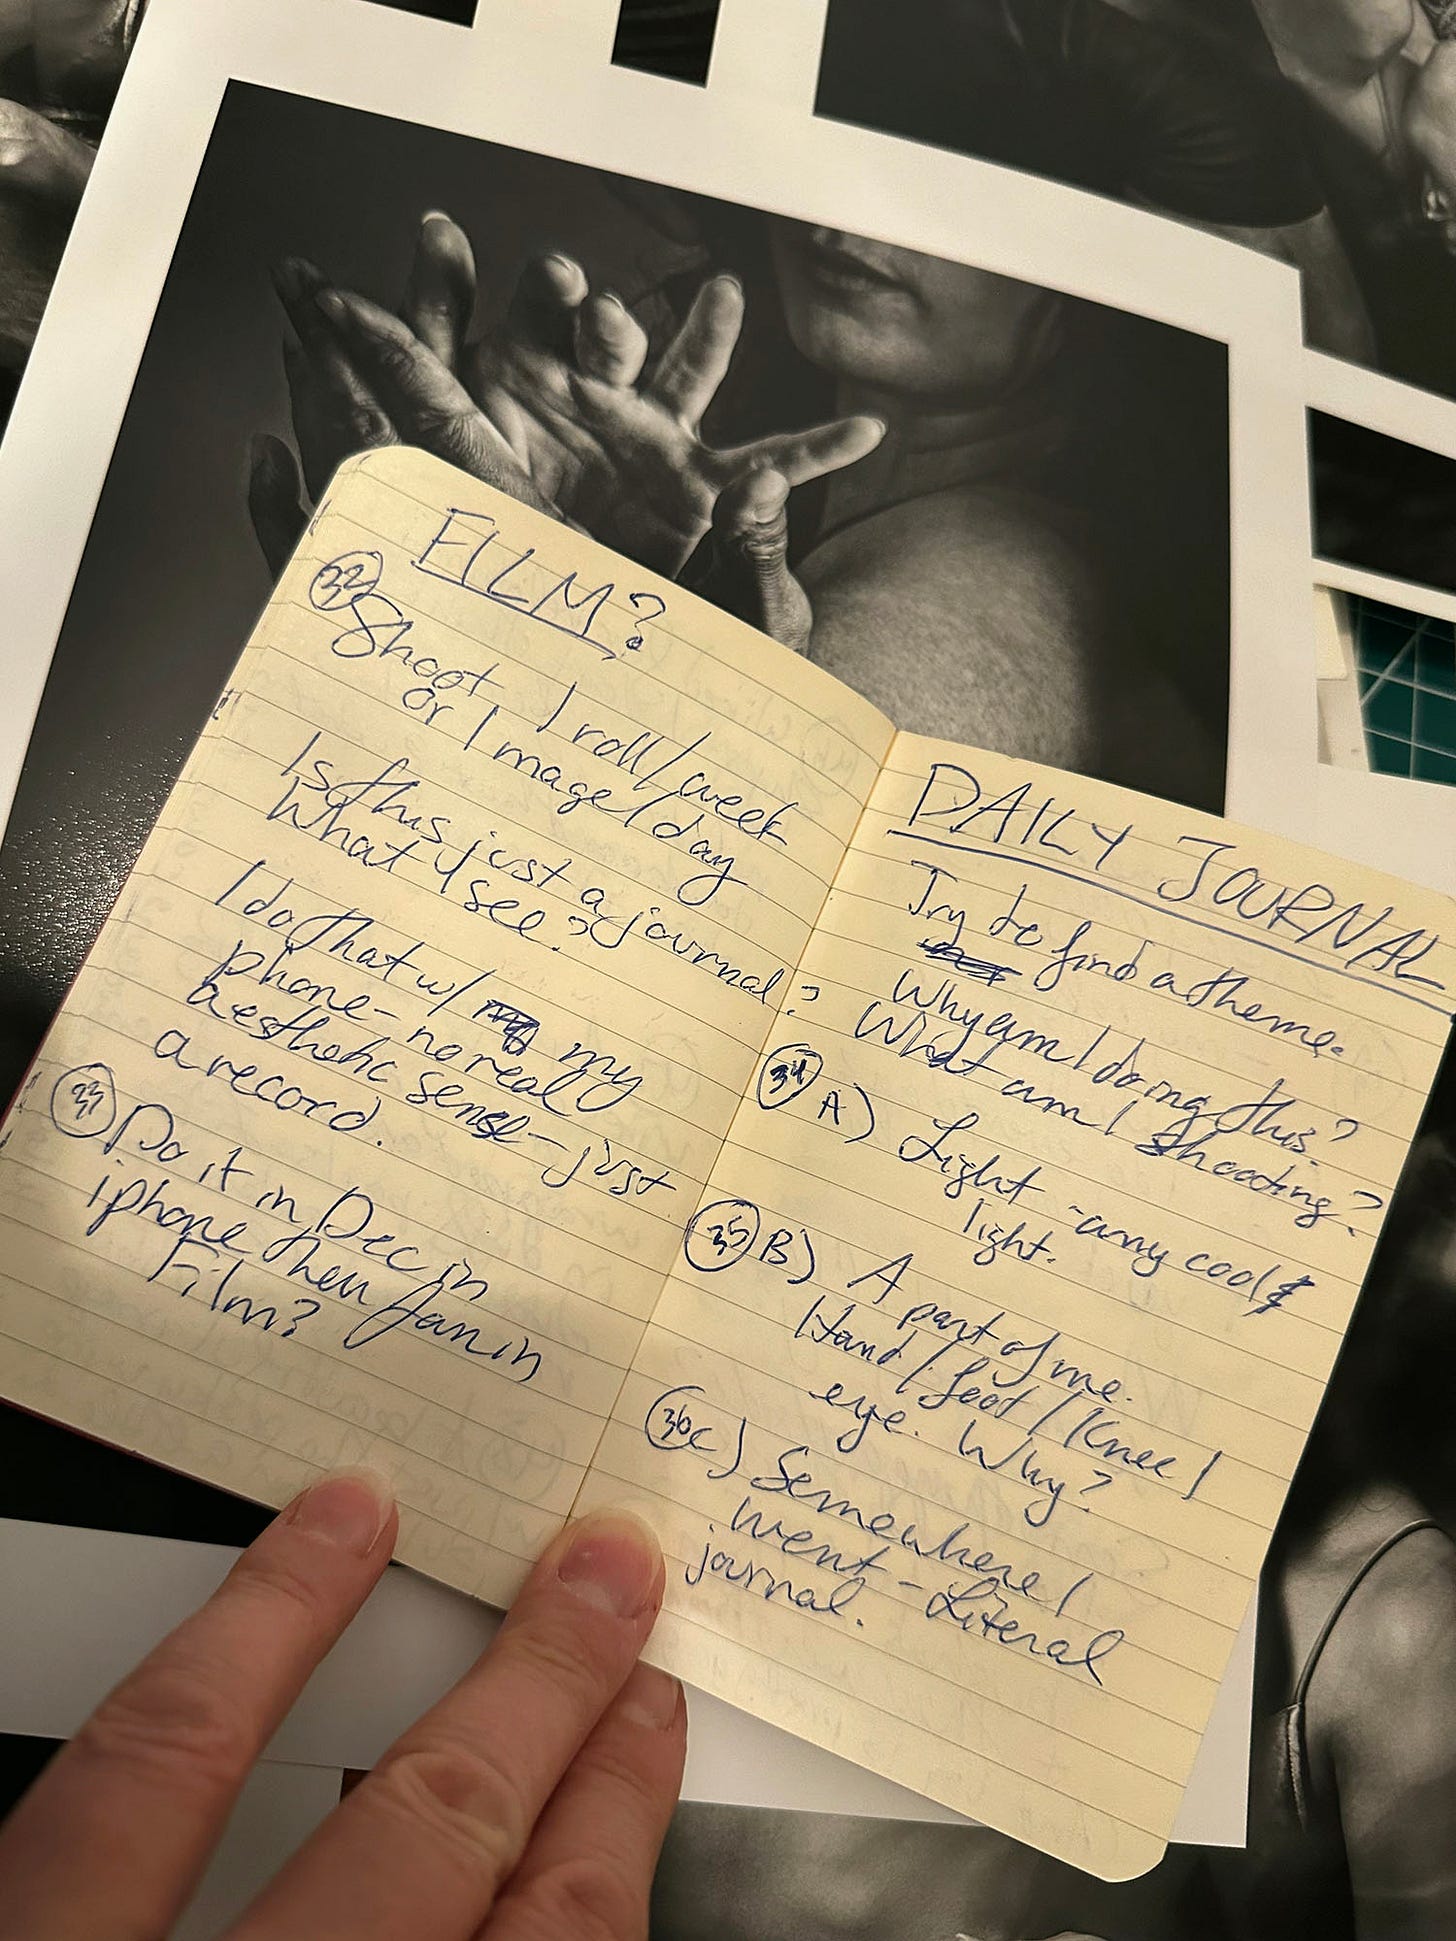 FILM?
32
Shoot 1 roll/week
or 1 image/day
Is this just a journal?
What I see?
I do that w/ my
phone - no real
aesthetic sense - just
a record.
33 Do it in Dec in
iphone then Jan in
Film?
DAILY JOURNAL
Try to find a theme.
Why am I doing this?
What am I shooting?
34 A) Light - any cool
light.
35 B) A part of me.
Hand / foot / Knee /
eye. Why?
36 C) Somewhere I
went - Literal
journal.